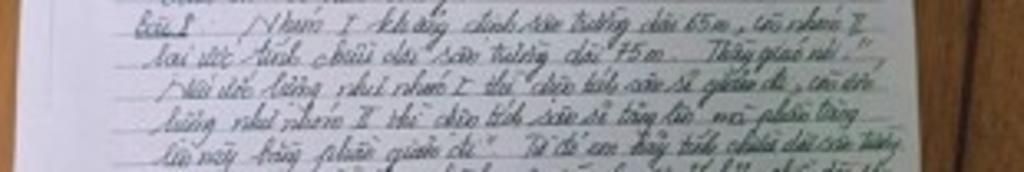 Bài 1: Nhóm I khẳng định sân trường dài 65m, còn nhóm II
lại ước tính chiều dài sân trường dài 75m. Thầy giáo nói: "
Nếu ước lượng như nhóm I thì diện tích sân sẽ giảm đi, còn ước
lượng như nhóm II thì diện tích sân sẽ tăng lên mà phần tăng
lên này bằng phần giảm đi" Từ đó em hãy tính chiều dài sân trường